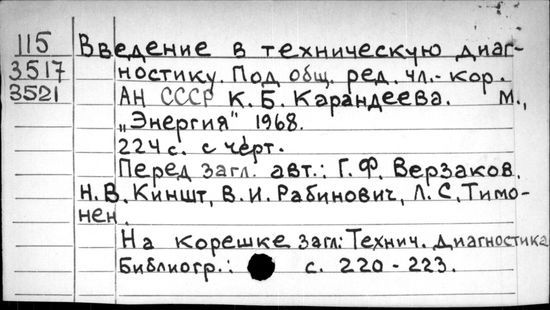 115 Введение в техническую диаг-
3517 ностику. Под общ. ред. чл.-кор.
3521 АН СССР К.Б. Карандеева. М.,
„Энергия" 1968.
224 с. с черт.
Перед загл. авт.: Г.Ф. Верзаков.
Н.В. Киншт, В.И. Рабинович, Л.С. Тимо-
нен.
На корешке загл: Технич. диагностика
Библиогр.: с. 220-223.